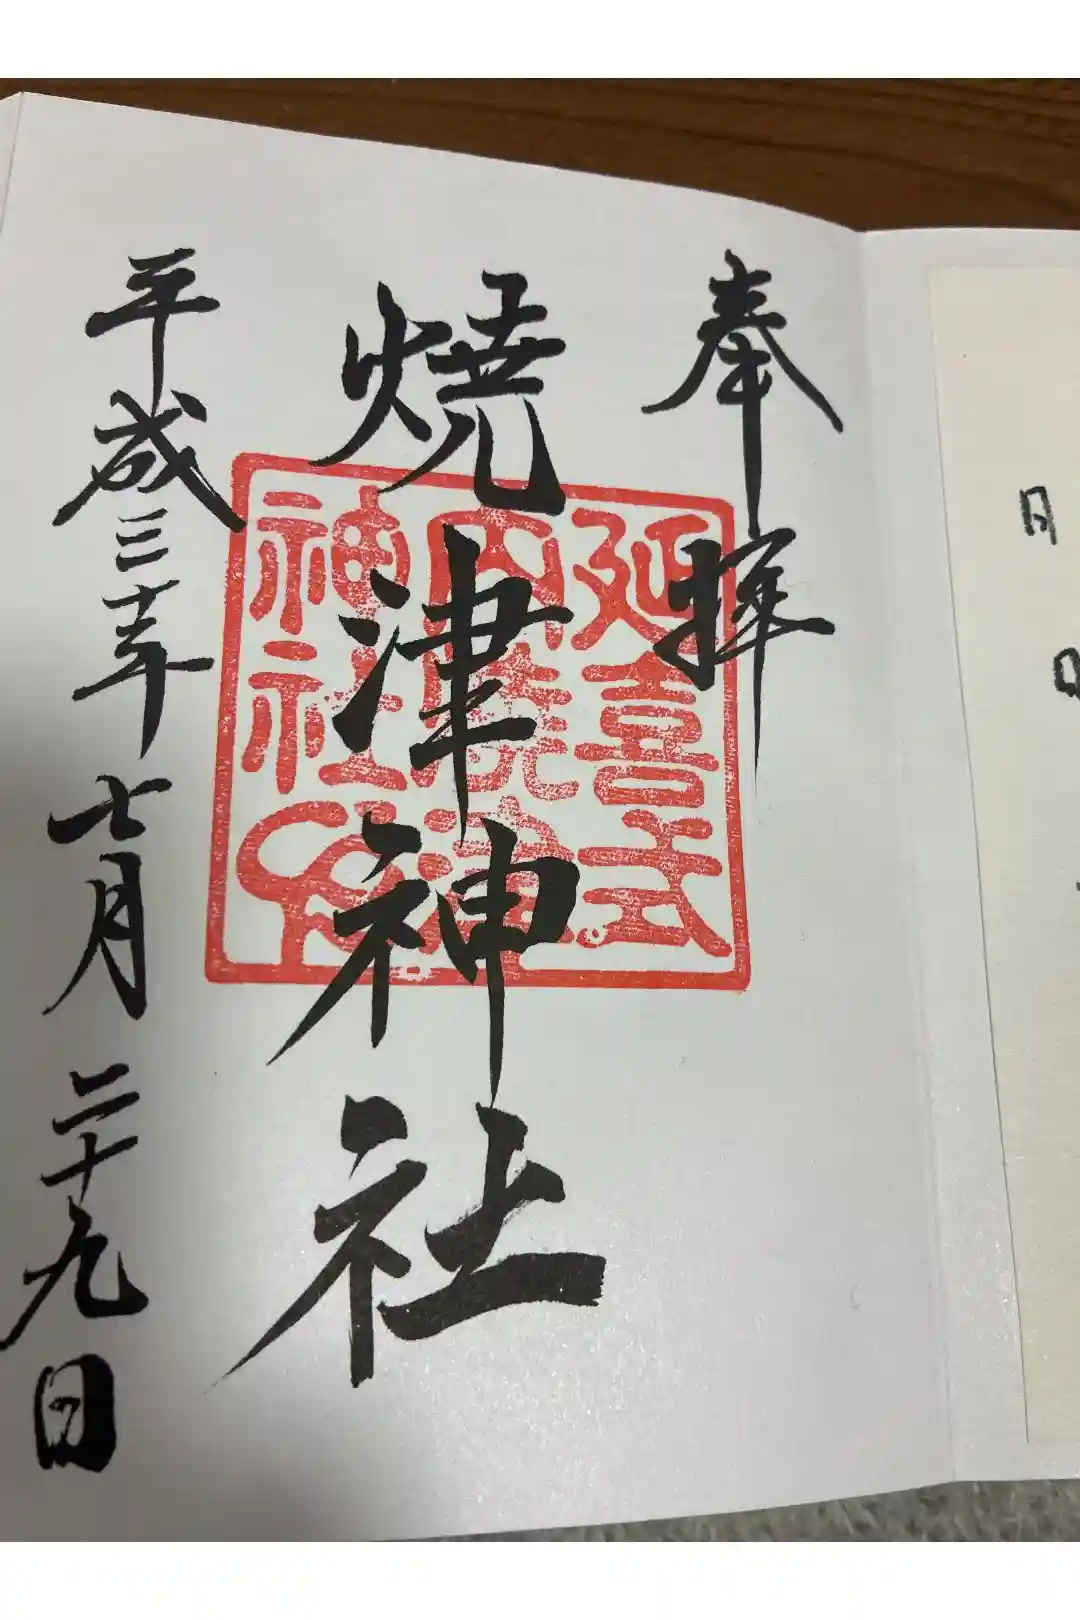 日
奉拝
延喜式
内焼津
神社印
焼津神社
平成三十年七月二十九日